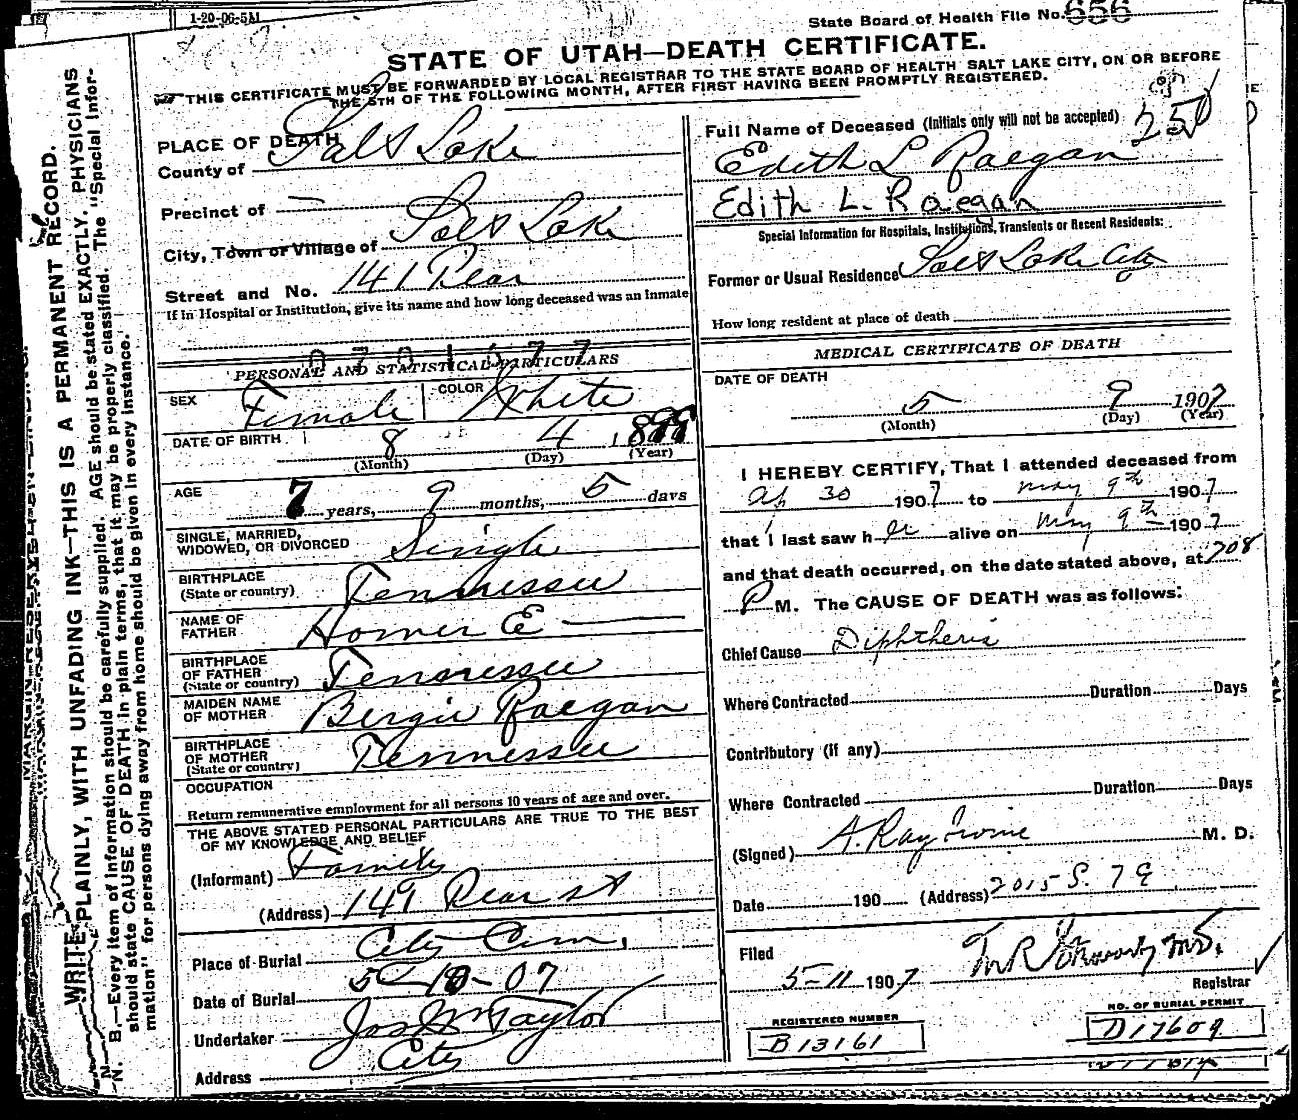 1-20-06-5M
State Board of Health File No. 656
STATE OF UTAH—DEATH CERTIFICATE.
THIS CERTIFICATE MUST BE FORWARDED BY LOCAL REGISTRAR TO THE STATE BOARD OF HEALTH SALT LAKE CITY, ON OR BEFORE
THE 5TH OF THE FOLLOWING MONTH, AFTER FIRST HAVING BEEN PROMPTLY REGISTERED.
WRITE PLAINLY, WITH UNFADING INK—THIS IS A PERMANENT RECORD.
N. B.—Every item of information should be carefully supplied. AGE should be stated EXACTLY. PHYSICIANS
should state CAUSE OF DEATH in plain terms, that it may be properly classified. The "Special Infor-
mation" for persons dying away from home should be given in every instance.
PLACE OF DEATH
County of Salt Lake
Precinct of —
City, Town or Village of Salt Lake
Street and No. 141 Pear
If in Hospital or Institution, give its name and how long deceased was an Inmate
PERSONAL AND STATISTICAL PARTICULARS
SEX Female COLOR White
DATE OF BIRTH 8 4 1899
(Month) (Day) (Year)
AGE 7 years, 9 months, 5 days
SINGLE, MARRIED,
WIDOWED, OR DIVORCED Single
BIRTHPLACE
(State or country) Tennessee
NAME OF
FATHER Homer E —
BIRTHPLACE
OF FATHER
(State or country) Tennessee
MAIDEN NAME
OF MOTHER Bergie Raegan
BIRTHPLACE
OF MOTHER
(State or country) Tennessee
OCCUPATION
Return remunerative employment for all persons 10 years of age and over.
THE ABOVE STATED PERSONAL PARTICULARS ARE TRUE TO THE BEST
OF MY KNOWLEDGE AND BELIEF
(Informant) Family
(Address) 149 Pear st
Place of Burial City Cem.
Date of Burial 5-10-07
Undertaker Jos Wm Taylor
Address City
Full Name of Deceased (Initials only will not be accepted) 250
Edith L Raegan
Edith L. Raegan
Special Information for Hospitals, Institutions, Transients or Recent Residents:
Former or Usual Residence Salt Lake City
How long resident at place of death
MEDICAL CERTIFICATE OF DEATH
DATE OF DEATH
5 9 1907
(Month) (Day) (Year)
I HEREBY CERTIFY, That I attended deceased from
Ap 30 1907 to May 9th 1907
that I last saw her alive on May 9th 1907
and that death occurred, on the date stated above, at 708
P M. The CAUSE OF DEATH was as follows:
Chief Cause Diphtheria
Where Contracted Duration Days
Contributory (if any)
Where Contracted Duration Days
(Signed) A. Ray Irvine M. D.
Date 190 (Address) 2015 S. 7 E
Filed
5-11 1907
Registrar
REGISTERED NUMBER
B13161
NO. OF BURIAL PERMIT
D17609